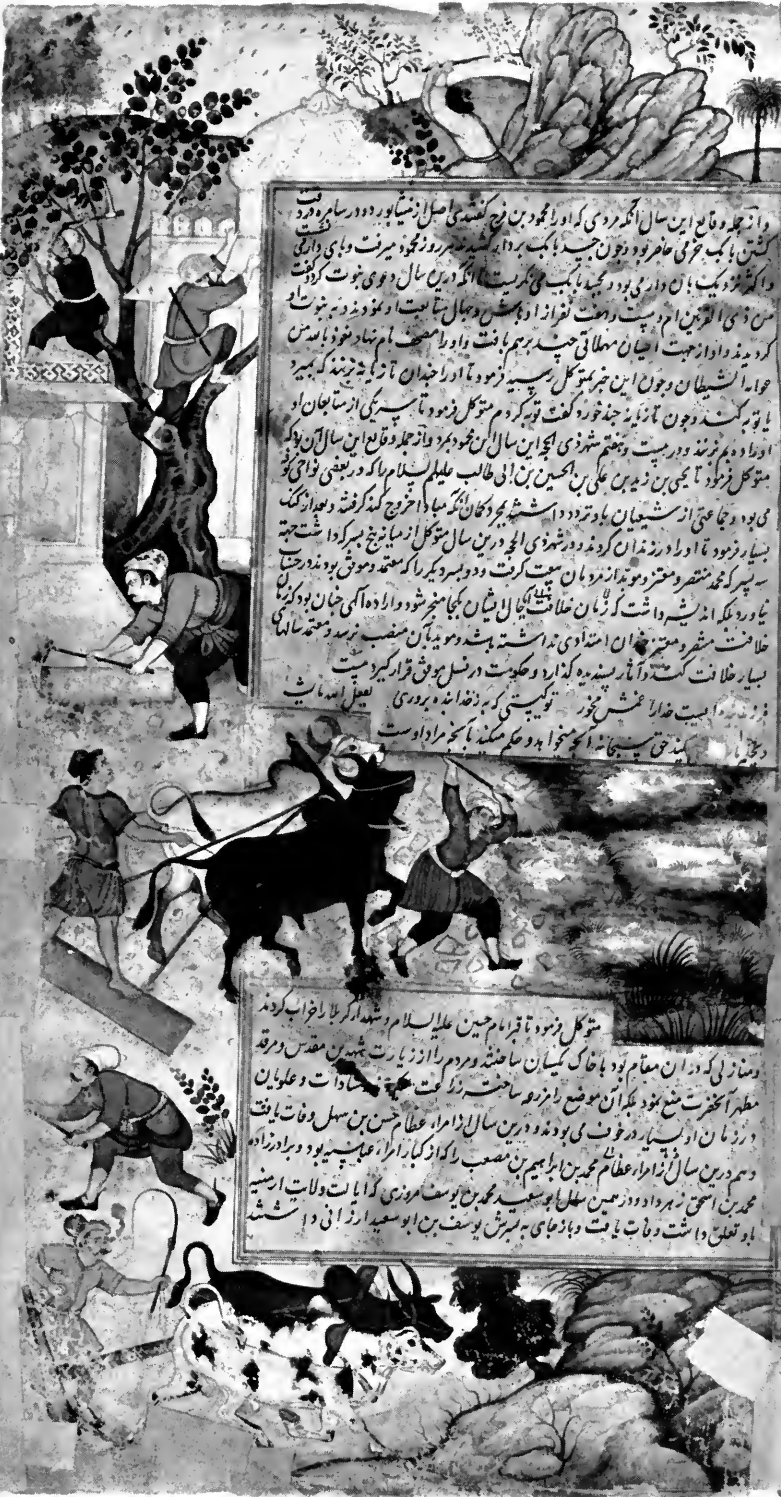 و از جمله وقایع این سال آنکه مردی که او را محمود بن فرج گفتندی اصل از نیشابور بود در سامره در وقت
کشتن بابک خرمی حاضر بود و چون جسد بابک بر دار کشیدند هر روز محمود میرفت و بپای دار می نشست
و اکثر نزدیک بان دار می بود و بجسد بابک می نگریست تا آنکه درین سال دعوی نبوت کرد و گفت
من ذی القرنین ام و بیست و هفت نفر از اوباش و جهال متابعت او نمودند و به نبوت او
گرویدند و او از جهت ایشان مهملاتی چند بر هم بافت و او را مصحف نام نهاد نعوذ بالله من
الشیطان و چون این خبر بمتوکل رسید فرمود تا او را چندان تازیانه بزنند که بمیرد
یا توبه کند و چون تازیانه چند خورد گفت توبه کردم متوکل فرمود تا هر یکی از متابعان او
او را ده بزنند و در بیست و هفتم شهر ذی الحجه این سال ابن محمود بمرد و از جمله وقایع این سال آن بود که
متوکل فرمود تا یحیی بن زید بن علی بن الحسین بن ابی طالب علیهم السلام را که در بعضی نواحی
می بود و جماعتی از شیعیان باو تردد داشتند بمجرد گمان آنکه مبادا خروج کند گرفتند و بعد از کتک
بسیار فرمود تا او را در زندان کردند و در شهر ذی الحجه درین سال متوکل از میانه پنج پسر که داشت جهة
سه پسر که محمد منتصر و معتز و موید از مردمان بیعت گرفت و دو پسر دیگر را که معتمد و موفق بودند در حساب
نیاورد بلکه اندیشه داشت که زمان خلافت بحال ایشان کجا منجر شود و اراده الهی چنان بود که زمان
خلافت منتصر و معتز چندان امتدادی نداشته باشد و موید بان منصب نرسد و معتمد سالهای
بسیار خلافت کند و آثار پسندیده گذارد و حکومت در نسل موفق قرار گیرد بیت
خدا را غمش مخور تو کیستی که به ز خدا بنده پروری یفعل الله ما یشاء
حق سبحانه آنچه میخواهد و حکم میکند بآنچه مراد اوست
متوکل فرمود تا قبر امام حسین علیه السلام و شهدای کربلا را خراب کردند
و منازلی که در ان مقام بود با خاک یکسان ساختند و مردم را از زیارت مشهد مقدس و مرقد
مطهر آنحضرت منع نمود بلکه آن موضع را مزرعه ساخته زراعت سادات و علویان
در زمان او بسیار در خوف می بودند و درین سال از امراء عظام حسن بن سهل وفات یافت
و هم درین سال از امراء عظام محمد بن ابراهیم بن مصعب را که از کبار امراء عباسیه بود و برادرزاده
محمد بن اسحق زهر داد و در همین سال ابو سعید محمد بن یوسف مروزی که ایالت ولایات ارمنیه
باو تعلق داشت وفات یافت و بازجای به پسرش یوسف بن ابو سعید ارزانی داشتند